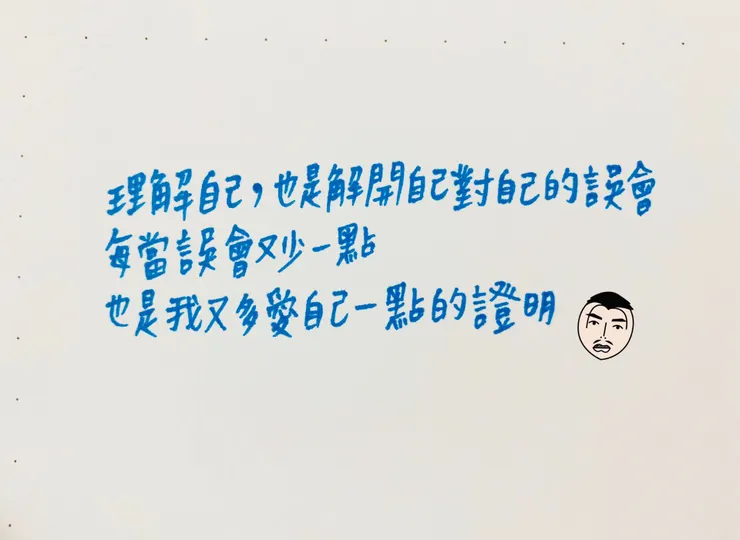 理解自己，也是解開自己對自己的誤會
每當誤會又少一點
也是我又多愛自己一點的證明